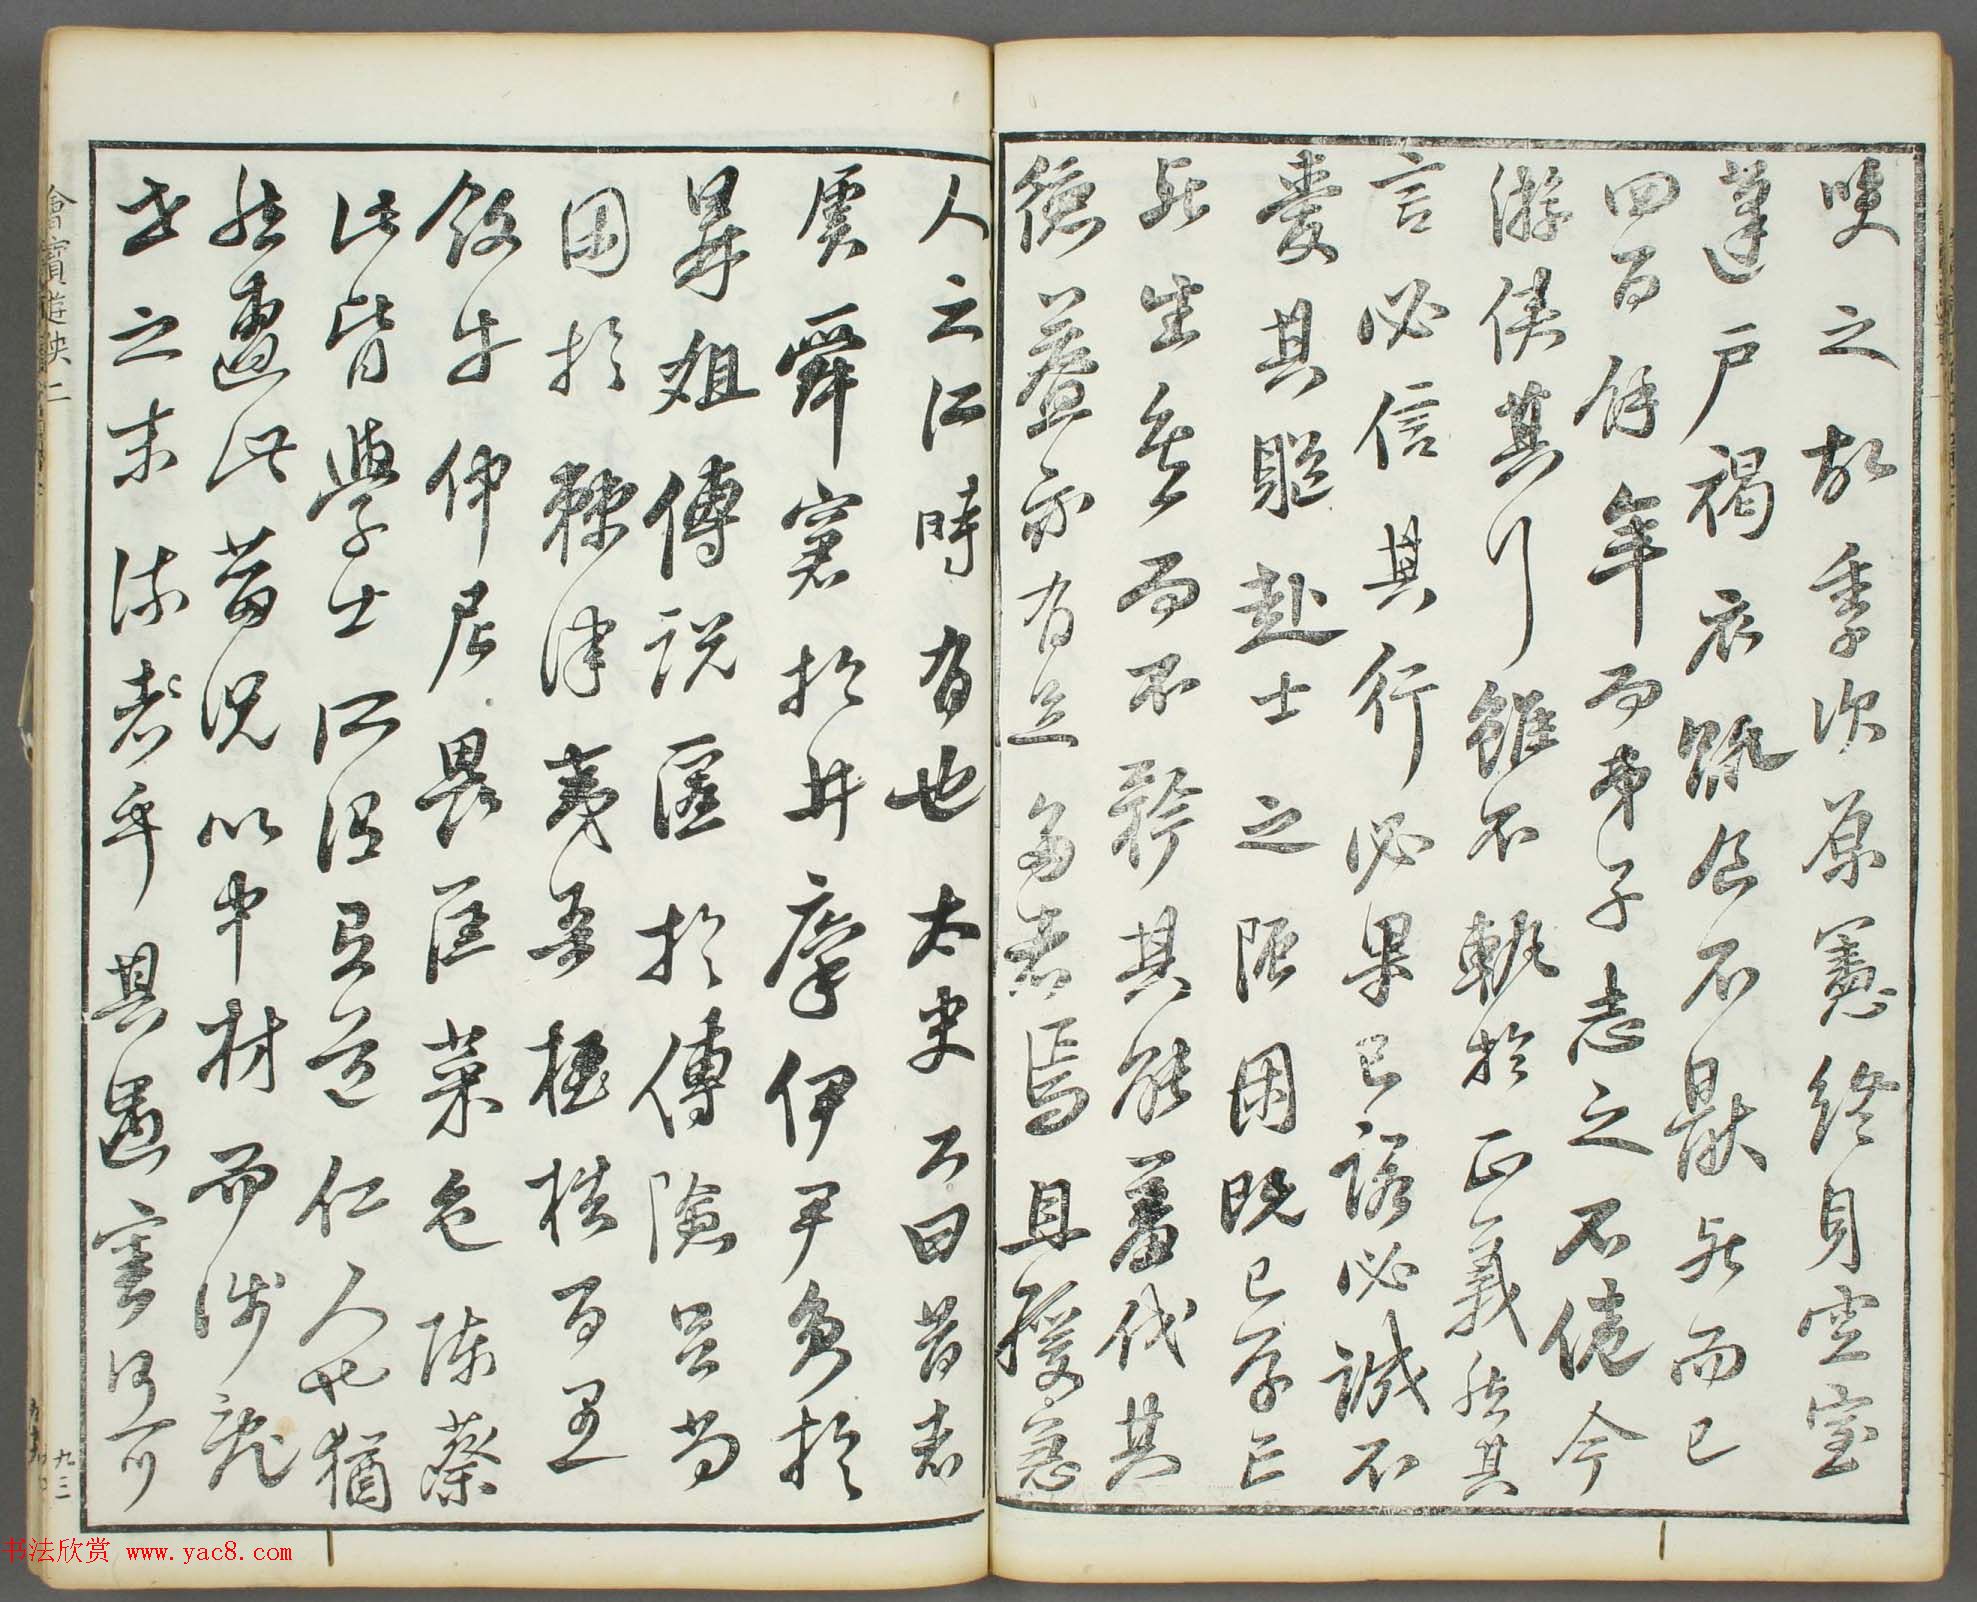 笑之故季次原憲終身空室
蓬戶褐衣疏食不厭死而已
四百餘年而弟子志之不倦今
游俠其行雖不軌於正義然其
言必信其行必果已諾必誠不
愛其軀赴士之阨困既已存亡
死生矣而不矜其能羞伐其
德蓋亦有足多者焉且緩急
人之所時有也太史公曰昔者
虞舜窘於井廩伊尹負於
鼎俎傅說匿於傅險呂尚
困於棘津夷吾桎梏百里
飯牛仲尼畏匡菜色陳蔡
此皆學士所謂有道仁人也猶
然遭此菑況以中材而涉亂
世之末流者乎其遇害何可
會寶遊映二
九三
书法欣赏 www.yac8.com